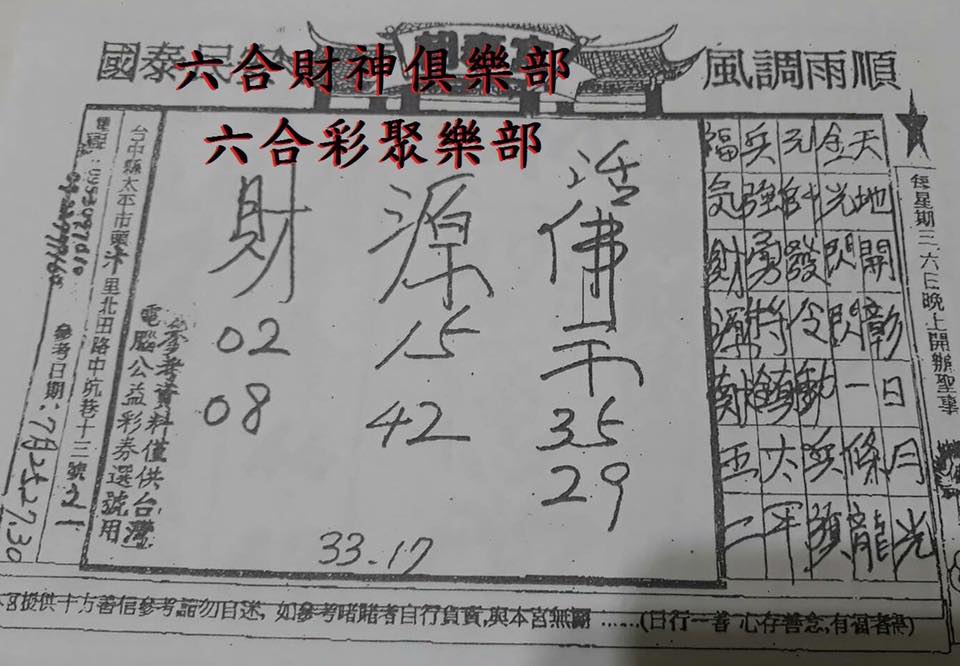 國泰民
六合財神俱樂部
風調雨順
六合彩聚樂部
每星期三.六日晚上開辦聖事
天地開彰日月光
金光閃閃一條龍
元帥發令動兵
兵強勇將
福氣財源
活佛
干
35
29
源
15
42
財
02
08
33.17
參考資料僅供台灣
電腦公益彩券選號用
台中縣太平市頭汴里北田路中坑巷十三號之1
參考日期:7月
7.30
本宮提供十方善信參考請勿自迷, 如參考賭賭者自行負責,與本宮無關 ......(日行一善 心存善念,有福者得)